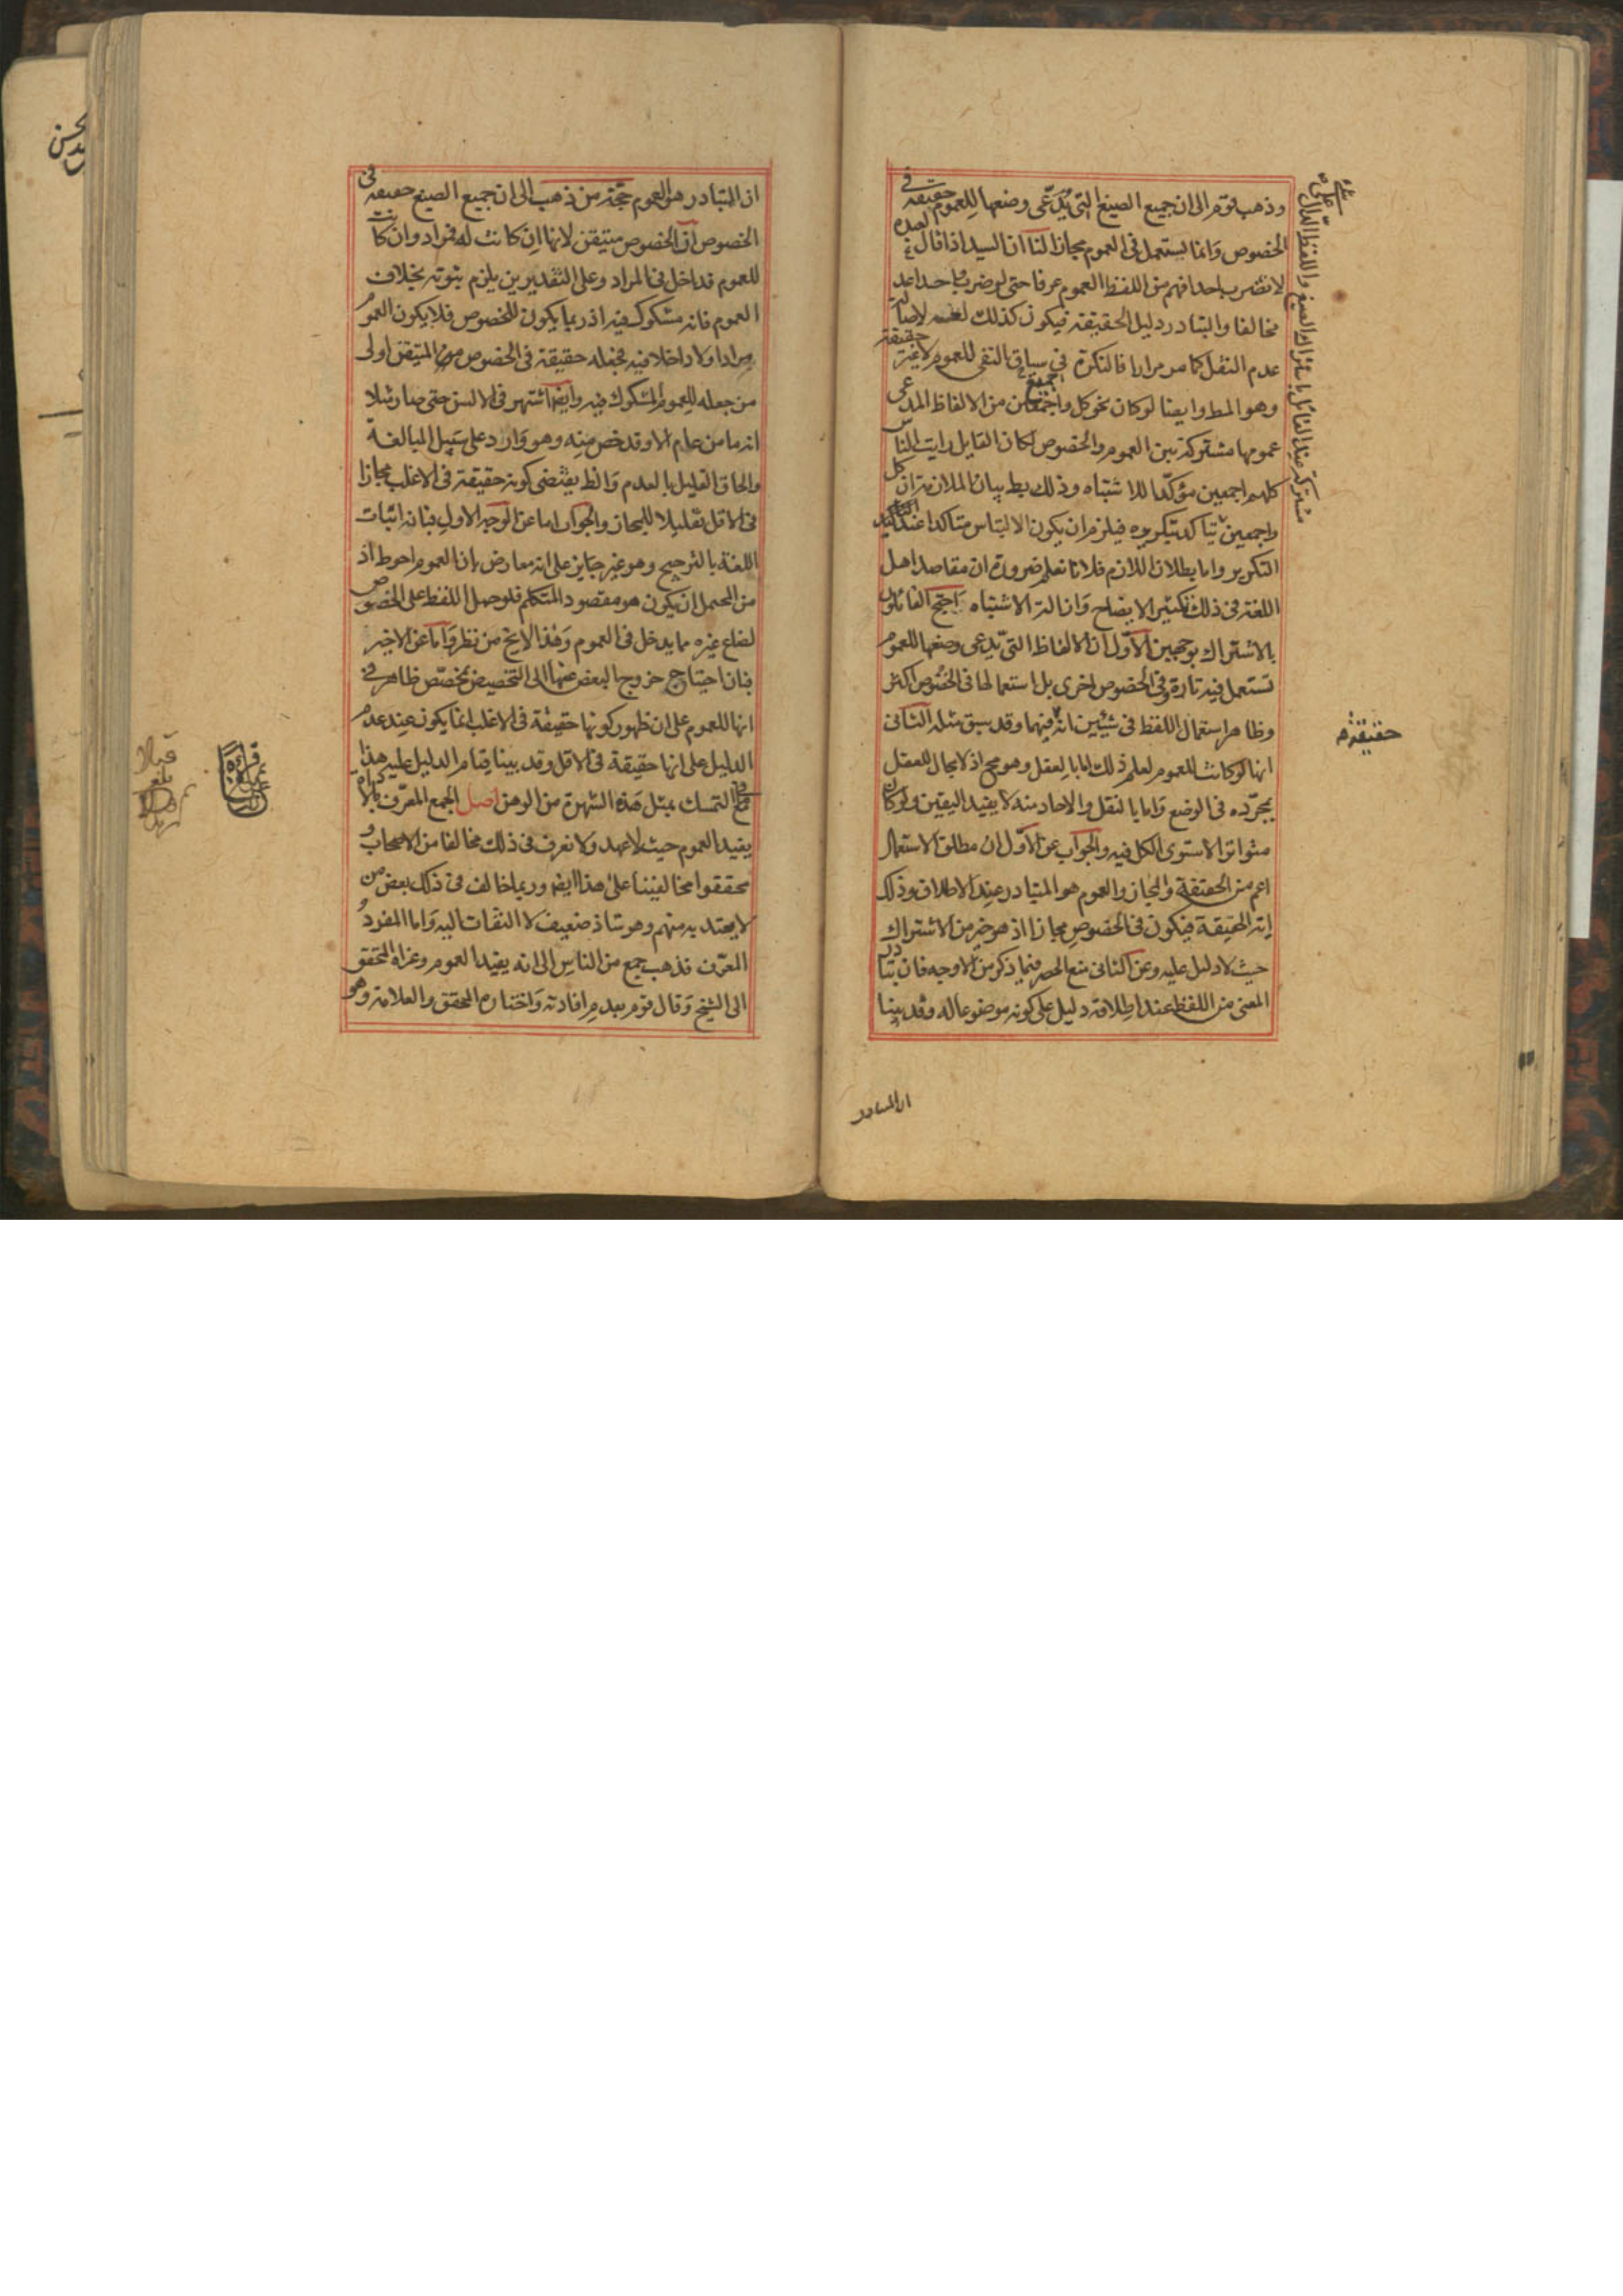 وذهب قوم الى ان جميع الصيغ التي يدّعى وضعها للعموم حقيقة في
الخصوص وانما يستعمل في العموم مجازا لنا ان السيد اذا قال لعبده
لا تضرب احدا فهم من اللفظ العموم عرفا حتى لو ضرب واحدا عد
مخالفا والتبادر دليل الحقيقة فيكون كذلك لغة لاصالة
عدم النقل كما مر مرارا فالنكرة في سياق النفي للعموم لا غير حقيقة
وهو المط وايضا لو كان نحو كل وجميع من الالفاظ المدعى
عمومها مشتركة بين العموم والخصوص لكان القايل رايت الناس
كلهم اجمعين مؤكدا للاشتباه وذلك بط بيان الملازمة ان كل
واجمعين يتاكد بتكريره فيلزم ان يكون الالتباس متاكدا عند
التكرير واما بطلان اللازم فلانا نعلم ضرورة ان مقاصد اهل
اللغة في ذلك تكثير الايضاح وازالة الاشتباه احتج القائلون
بالاشتراك بوجهين الاول ان الالفاظ التي يدعى وضعها للعموم
تستعمل فيه تارة وفي الخصوص اخرى بل استعمالها في الخصوص اكثر
وظاهر استعمال اللفظ في شيئين انه فيهما وقد سبق مثله الثاني
انها لو كانت للعموم لعلم ذلك اما بالعقل وهو مح اذ لا مجال للعقل
بمجرده في الوضع واما بالنقل والاحاد منه لا يفيد اليقين ولو كان
متواترا لاستوى الكل فيه والجواب عن الاول ان مطلق الاستعمال
اعم من الحقيقة والمجاز والعموم هو المتبادر عند الاطلاق وذلك
اية الحقيقة فيكون في الخصوص مجازا اذ هو خير من الاشتراك
حيث لا دليل عليه وعن الثاني منع الحصر فيما ذكر من الاوجه فان تبادر
المعنى من اللفظ عند اطلاقه دليل على كونه موضوعا له وقد بينا
حقيقة
ان المتبادر
ان المتبادر هو العموم حجة من ذهب الى ان جميع الصيغ حقيقة في
الخصوص ان الخصوص متيقن لانها ان كانت له فمراد وان كانت
للعموم فداخل في المراد وعلى التقديرين يلزم ثبوته بخلاف
العموم فانه مشكوك فيه اذ ربما يكون للخصوص فلا يكون العموم
مرادا ولا داخلا فيه فجعله حقيقة في الخصوص المتيقن اولى
من جعله للعموم المشكوك فيه وايضا اشتهر في الالسن حتى صار مثلا
انه ما من عام الا وقد خص منه وهو وارد على سبيل المبالغة
والحاق القليل بالعدم والظ يقتضى كونه حقيقة في الاغلب مجازا
في الاقل تقليلا للمجاز والجواب اما عن الوجه الاول فبان اثبات
اللغة بالترجيح وهو غير جايز على انه معارض بان العموم احوط اذ
من المحتمل ان يكون هو مقصود المتكلم فلو حمل اللفظ على الخصوص
لضاع غيره مما يدخل في العموم وهذا لا يخ من نظر واما عن الاخير
فبان احتياج خروج البعض عنها الى التخصيص بمخصص ظاهر في
انها للعموم على ان ظهور كونها حقيقة في الاغلب انما يكون عند عدم
الدليل على انها حقيقة في الاقل وقد بينا قيام الدليل عليه هذا
مع ما في التمسك بمثل هذه الشهرة من الوهن اصل الجمع المعرف بالاداة
يفيد العموم حيث لا عهد ولا نعرف في ذلك مخالفا من الاصحاب و
محققوا مخالفينا على هذا ايضا وربما خالف في ذلك بعض من
لا يعتد به منهم وهو شاذ ضعيف لا التفات اليه واما المفرد
المعرف فذهب جمع من الناس الى انه يفيد العموم وعزاه المحقق
الى الشيخ وقال قوم بعدم افادته واختاره المحقق والعلامة وهو